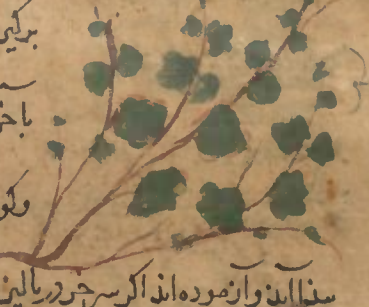 برکیر
با
وکو
سنا آید و آزموده اند اکر سر خر در پالیز